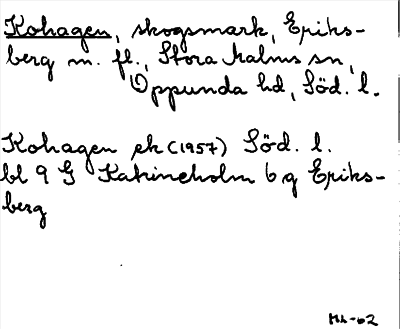 Kohagen, skogsmark, Eriks-
berg m. fl., Stora Malms sn,
Oppunda hd, Söd. l.
Kohagen ek (1957) Söd. l.
bl 9 G Katrineholm 6 g Eriks-
berg